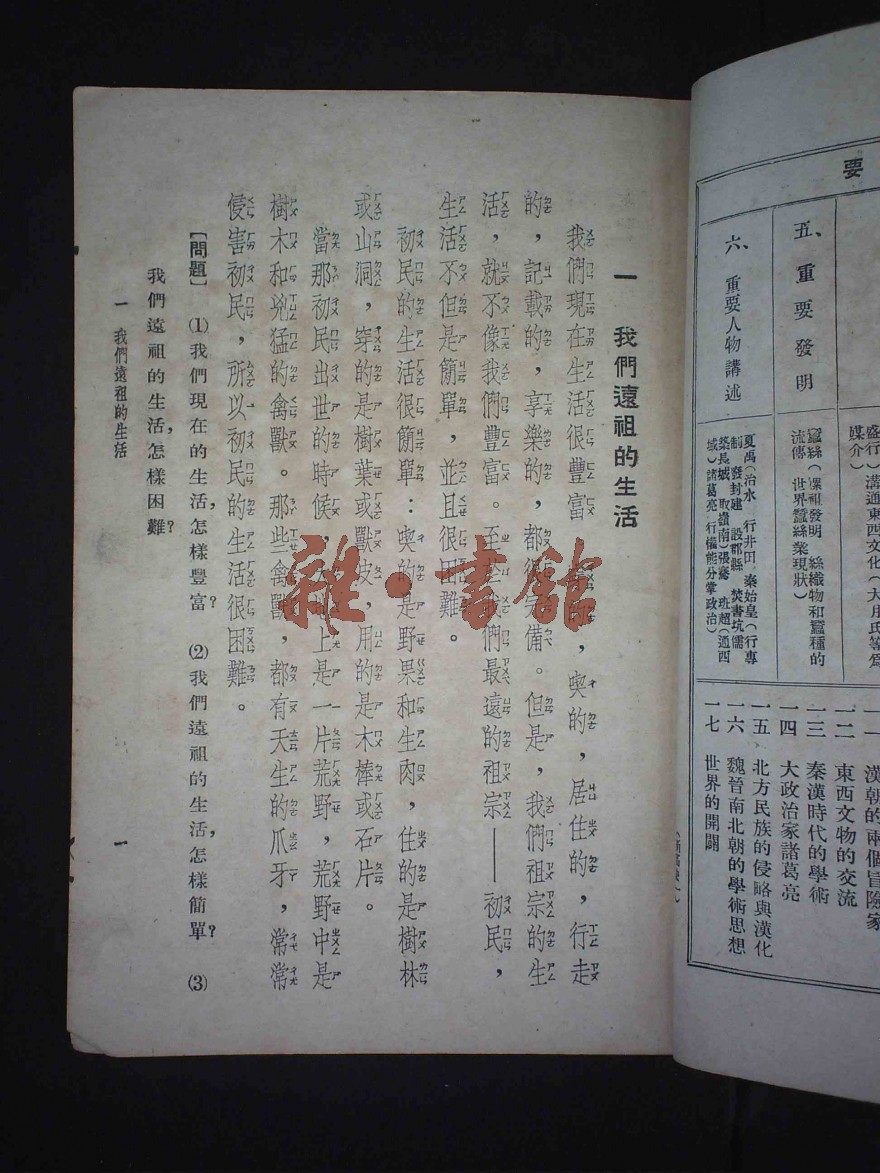 要
盛行）溝通東西文化（大月氏等爲
媒介）
漢朝的兩個冒險家
一二 東西文物的交流
五、重要發明
蠶絲（嫘祖發明 絲織物和蠶種的
流傳 世界蠶絲業現狀）
一三 秦漢時代的學術
一四 大政治家諸葛亮
六、重要人物講述
夏禹（治水 行井田）秦始皇（行專
制 廢封建 設郡縣 焚書坑儒
築長城 取嶺南）張騫 班超（通西
域）諸葛亮（行權能分掌政治）
一五 北方民族的侵略與漢化
一六 魏晉南北朝的學術思想
一七 世界的開闢
一 我們遠祖的生活
我們現在生活很豐富 的，喫的，居住的，行走
的，記載的，享樂的，都很完備。但是，我們祖宗的生
活，就不像我們豐富。至於我們最遠的祖宗——初民，
生活不但是簡單，並且很困難。
初民的生活很簡單：喫的是野果和生肉，住的是樹林
或山洞，穿的是樹葉或獸皮，用的是木棒或石片。
當那初民出世的時候，大地上是一片荒野，荒野中是
樹木和兇猛的禽獸。那些禽獸，都有天生的爪牙，常常
侵害初民，所以初民的生活很困難。
【問題】 (1)我們現在的生活，怎樣豐富？ (2)我們遠祖的生活，怎樣簡單？ (3)
我們遠祖的生活，怎樣困難？
一 我們遠祖的生活
一
雜·書館